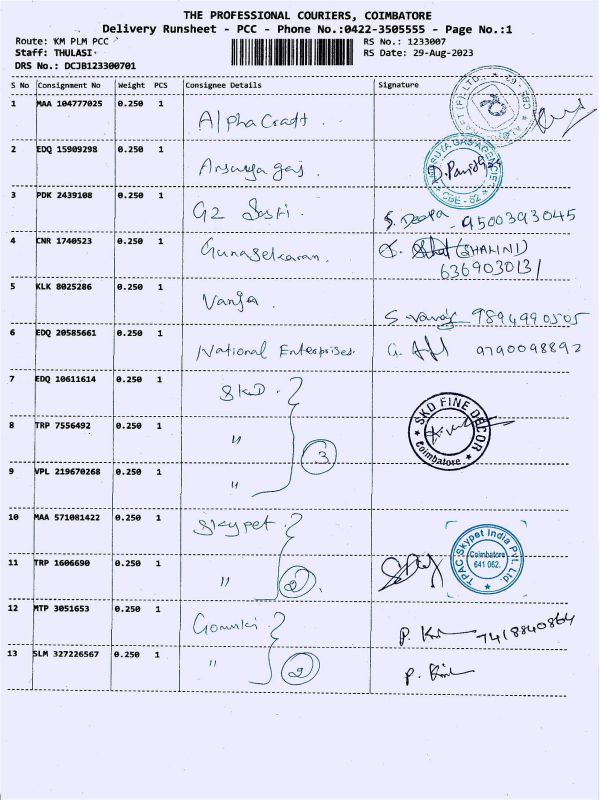 THE PROFESSIONAL COURIERS, COIMBATORE
Delivery Runsheet - PCC - Phone No.:0422-3505555 - Page No.:1
Route: KM PLM PCC
RS No.: 1233007
Staff: THULASI
RS Date: 29-Aug-2023
DRS No.: DCJB123300701
S No Consignment No Weight PCS Consignee Details Signature
1 MAA 104777025 0.250 1 AlphaCraft.
2 EDQ 15909298 0.250 1 Ansuya gas.
ANSUYA GAS AGENCIES CBE - 62
3 PDK 2439108 0.250 1 G2 S. Deepa - 9500393045
4 CNR 1740523 0.250 1 Gunasekaran. (SHALINI)
6369030131
5 KLK 8025286 0.250 1 Vanja. 9894990505
6 EDQ 20585661 0.250 1 National Enterprises. 9790098892
7 EDQ 10611614 0.250 1 SKD.
SKD FINE DECOR Coimbatore
8 TRP 7556492 0.250 1 "
3
9 VPL 219670268 0.250 1 "
10 MAA 571081422 0.250 1 Skypet
TPAC Skypet India Pvt. Ltd. Coimbatore 641 062.
11 TRP 1606690 0.250 1 "
2
12 MTP 3051653 0.250 1 7418840864
13 SLM 327226567 0.250 1 "
2